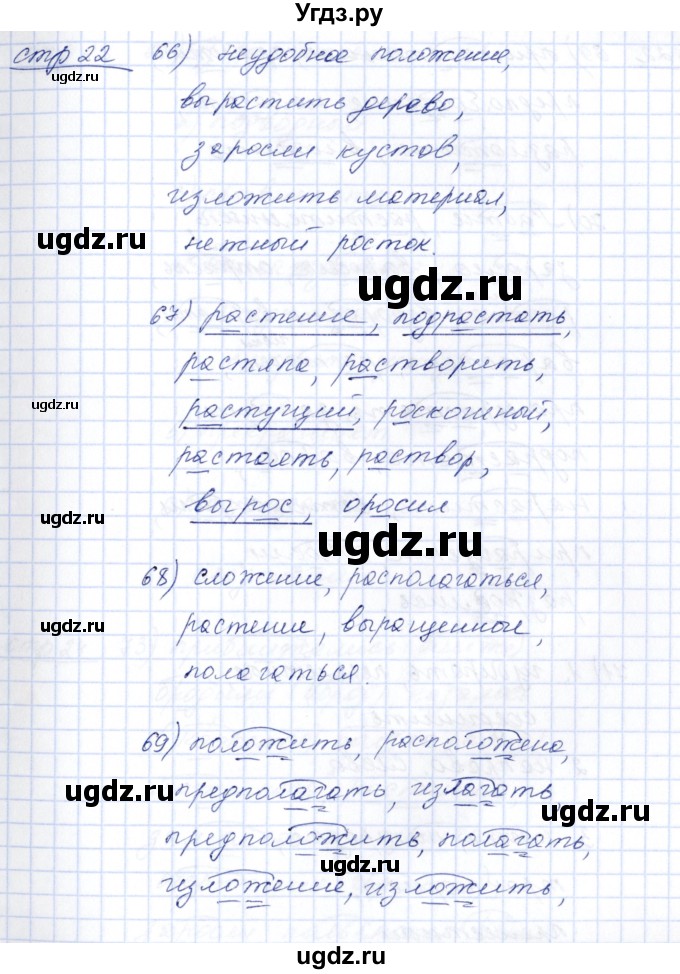 Угдз.ру
стр 22 66) неудобное положение,
ugdz.ru
вырастить дерево,
ugdz.ru
заросли кустов,
изложить материал,
ugdz.ru
нежный росток.
ugdz.ru
67) растение, подрастать,
растяпа, растворить,
ugdz.ru
растущий, роскошный,
растаять, раствор,
ugdz.ru
вырос, оросил
ugdz.ru
68) сложение, располагаться,
ugdz.ru
растение, выращенное,
полагаться.
69) положить, расположена,
ugdz.ru
предполагать, излагать
предположить, полагать,
ugdz.ru
изложение, изложить,
ugdz.ru